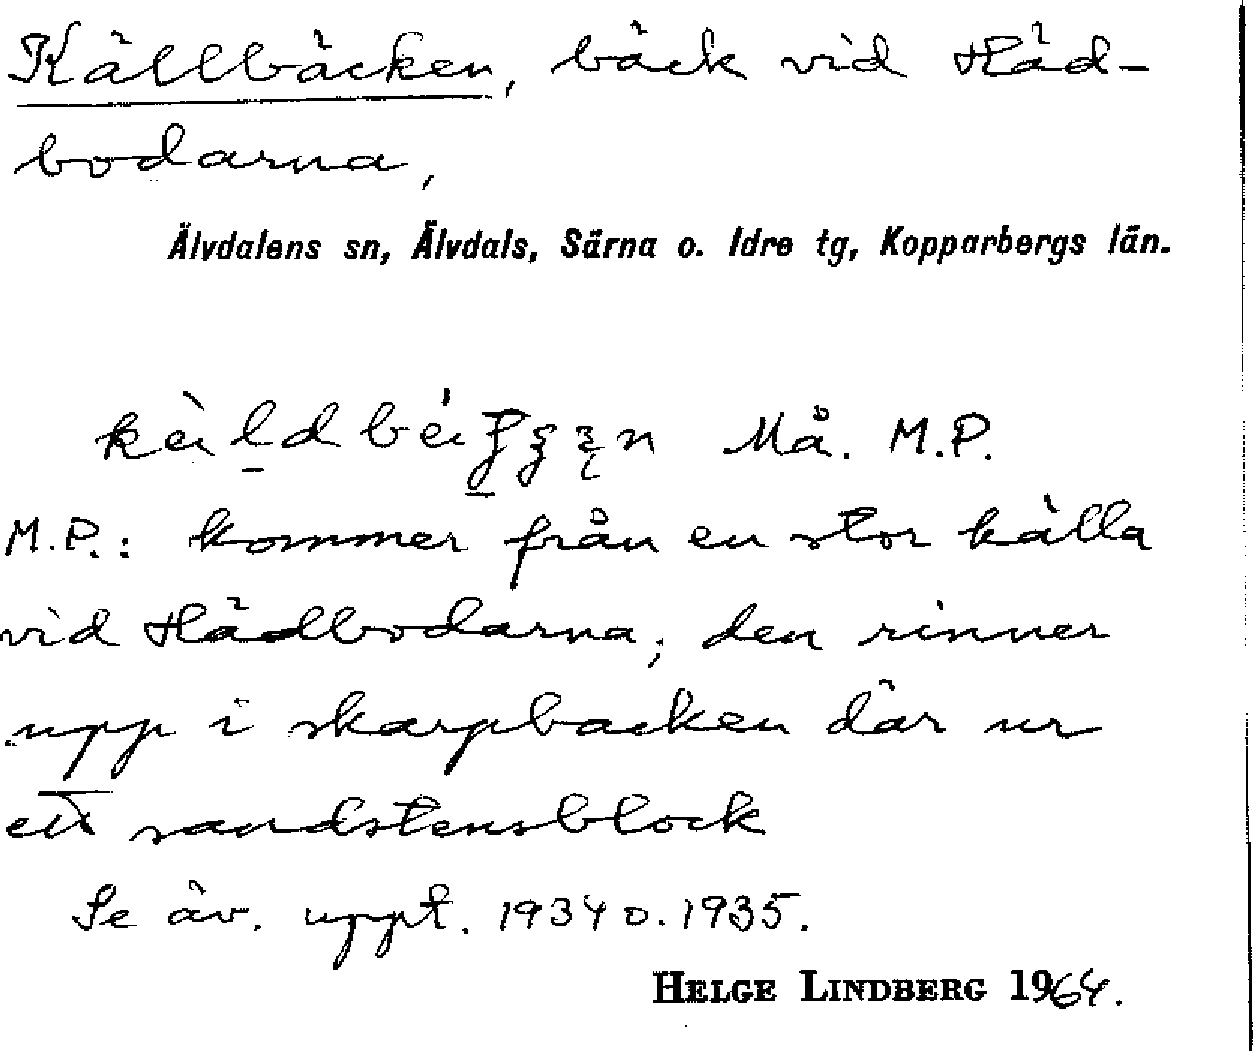 Källbäcken, bäck vid Häd-
bodarna,
Älvdalens sn, Älvdals, Särna o. Idre tg, Kopparbergs län.
Må. M.P.
M.P.: kommer från en stor källa
vid Hädbodarna; den rinner
upp i skarpbacken där ur
ett sandstensblock
Se äv. uppt. 1934 o. 1935.
HELGE LINDBERG 1964.